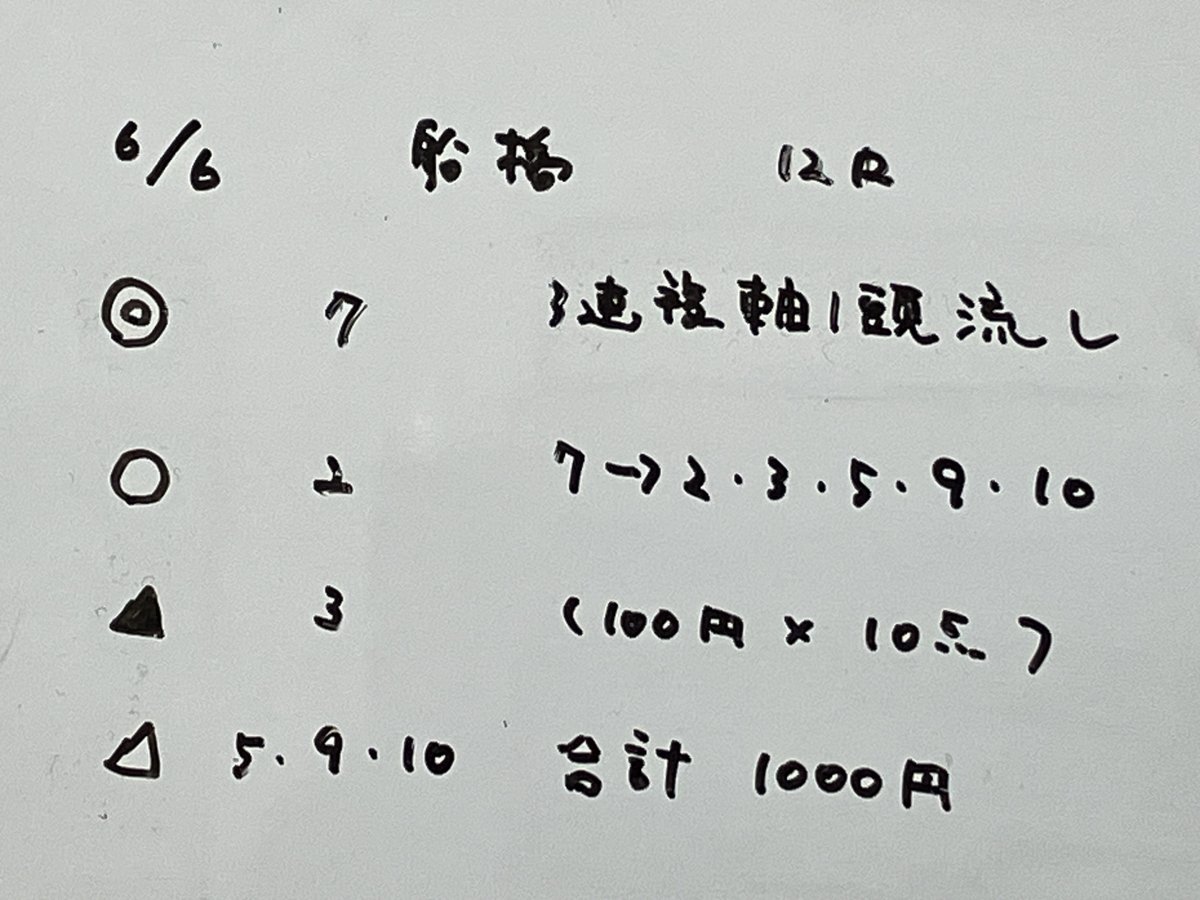 6/6 船橋 12R
◎ 7 3連複軸1頭流し
○ 2 7→2・3・5・9・10
▲ 3 (100円×10点)
△ 5・9・10 合計 1000円